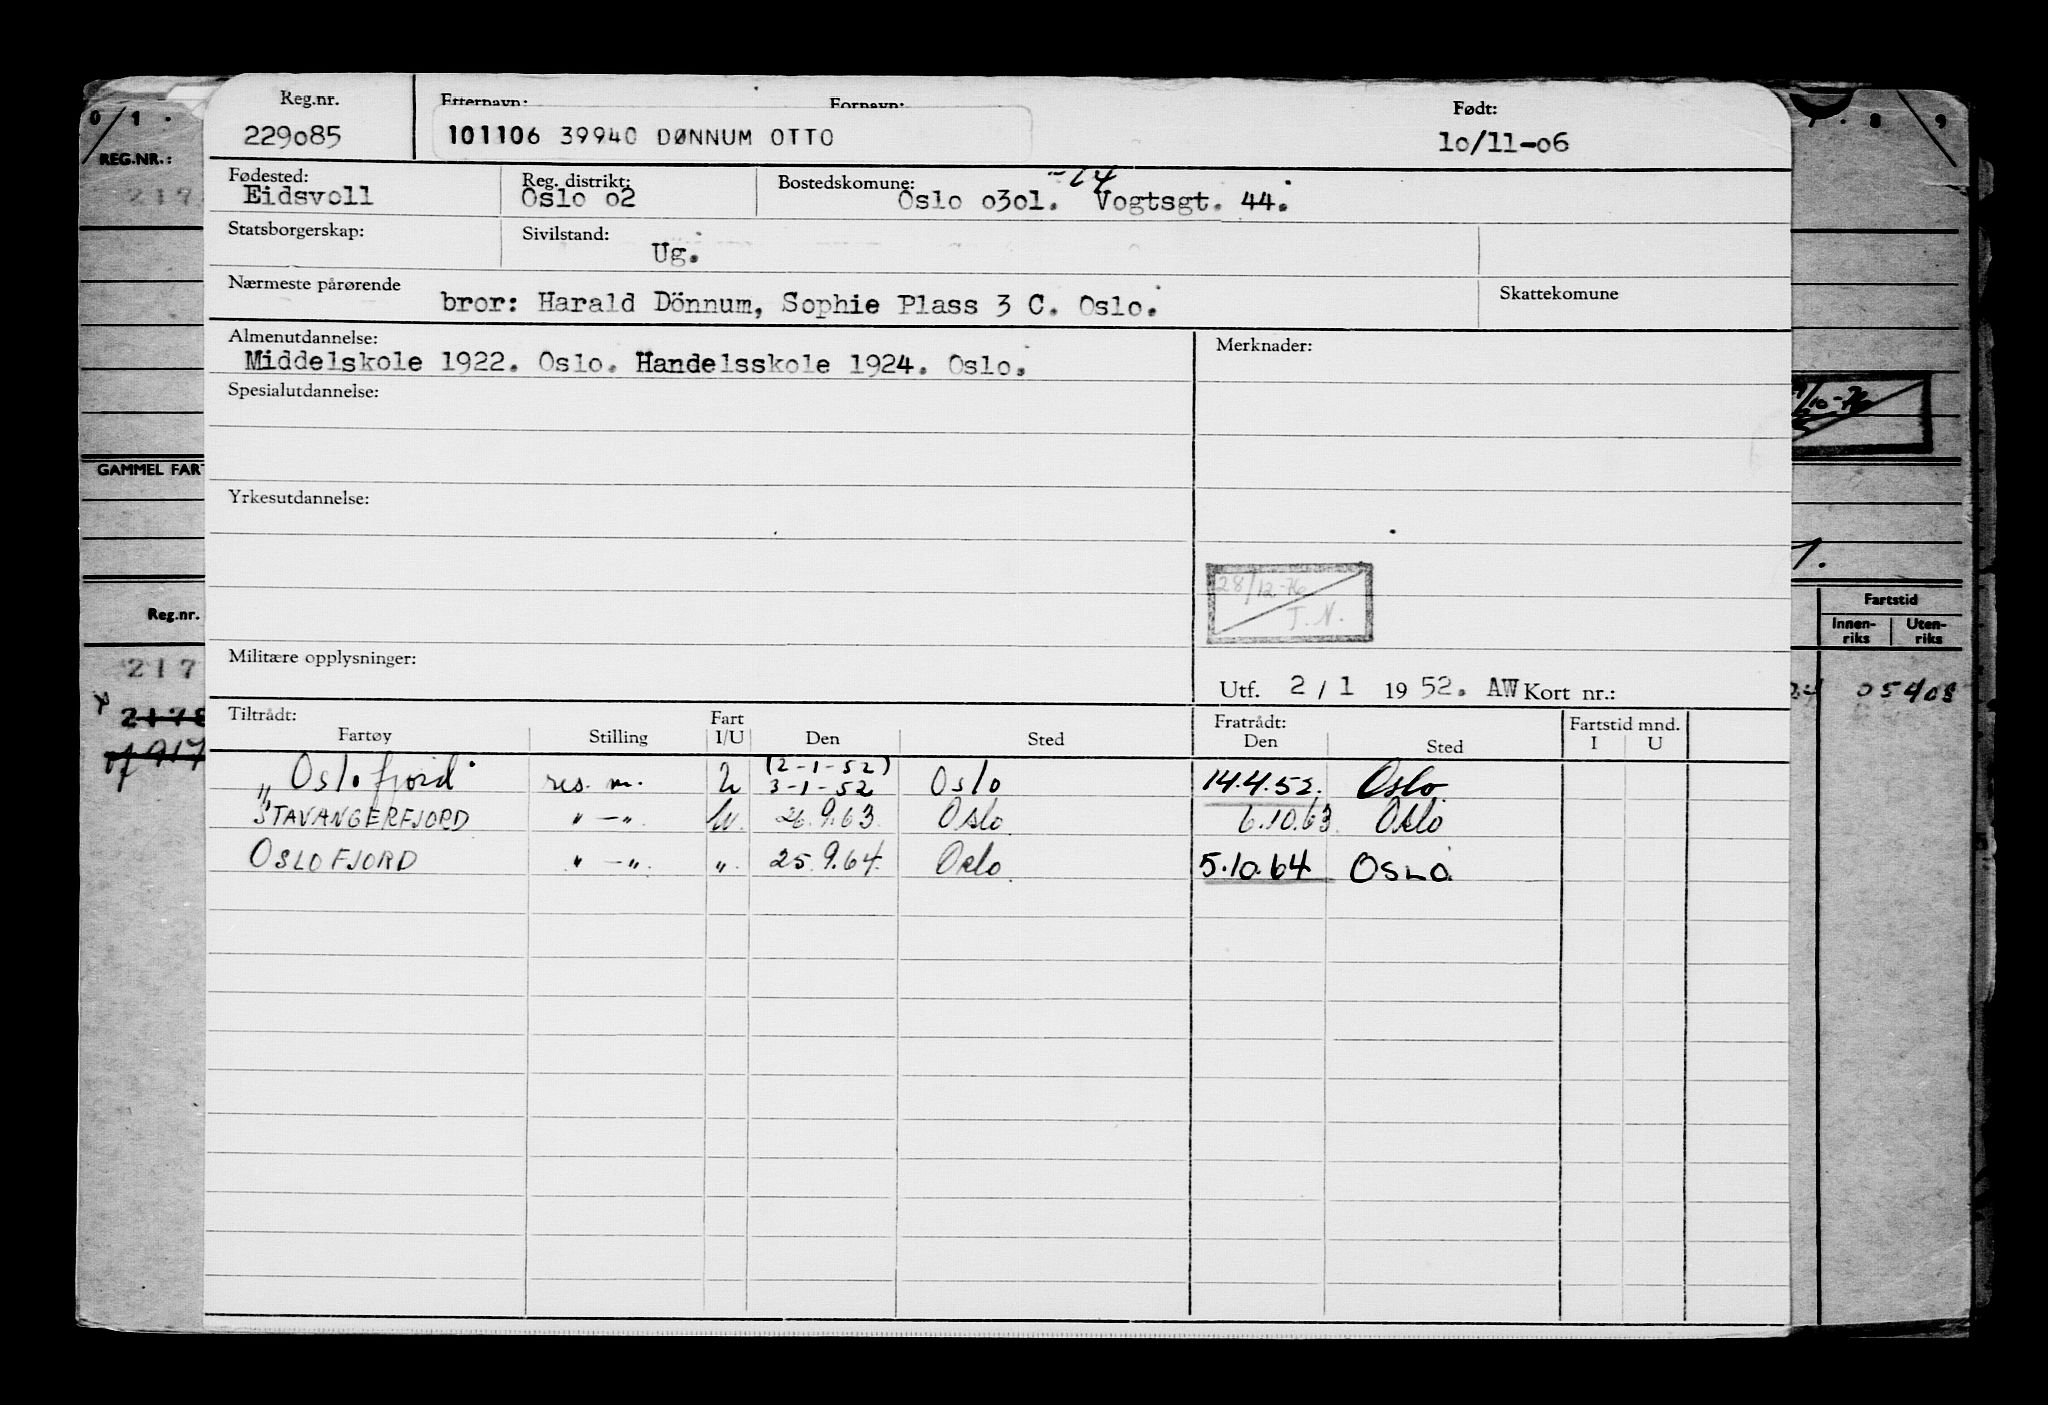 Reg.nr. Etternavn: Fornavn: Født:
229085 101106 39940 DØNNUM OTTO 10/11-06
Fødested: Reg. distrikt: Bostedskomune: -64
Eidsvoll Oslo o2 Oslo o3o1. Vogtsgt. 44.
Statsborgerskap: Sivilstand:
Ug.
Nærmeste pårørende Skattekomune
bror: Harald Dönnum, Sophie Plass 3 C. Oslo.
Almenutdannelse: Merknader:
Middelskole 1922. Oslo. Handelsskole 1924. Oslo.
Spesialutdannelse:
Yrkesutdannelse:
28/12-76
T.N.
Militære opplysninger:
Utf. 2/1 1952. AW Kort nr.:
Tiltrådt: Fart Fratrådt: Fartstid mnd.
Fartøy Stilling I/U Den Sted Den Sted I U
(2-1-52)
„Oslofjord" res. m. U 3-1-52 Oslo 14.4.52. Oslo
STAVANGERFJORD " —". U. 26.9.63 Oslo 6.10.63. Oslo
OSLOFJORD " —". ". 25.9.64. Oslo 5.10.64 OSLO.
0 1 .
REG.NR.:
217
GAMMEL FART
Reg.nr.
217
2178
. 8 9
/10-76
1.
Fartstid
Innen-riks Uten-riks
05408